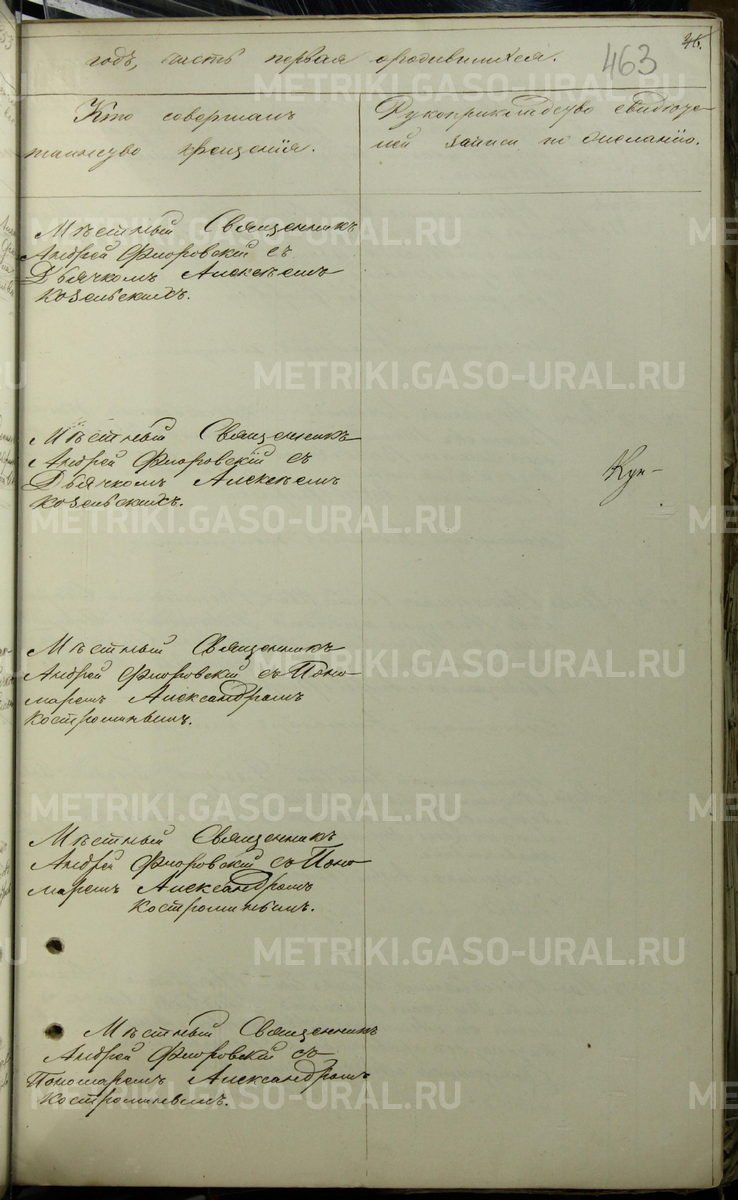 годъ, часть первая о родившихся.
463
Кто совершалъ
таинство крещенія.
Рукоприкладство свидѣте-
лей записи по желанію.
Мѣстный Священникъ
Андрей Флоровскій съ
Дьячкомъ Алексѣемъ
Козельскихъ.
Мѣстный Священникъ
Андрей Флоровскій съ
Дьячкомъ Алексѣемъ
Козельскихъ.
Куп-
Мѣстный Священникъ
Андрей Флоровскій съ Поно-
маремъ Александромъ
Костроминымъ.
Мѣстный Священникъ
Андрей Флоровскій съ Поно-
маремъ Александромъ
Костроминымъ.
Мѣстный Священникъ
Андрей Флоровскій съ
Пономаремъ Александромъ
Костроминымъ.
METRIKI.GASO-URAL.RU